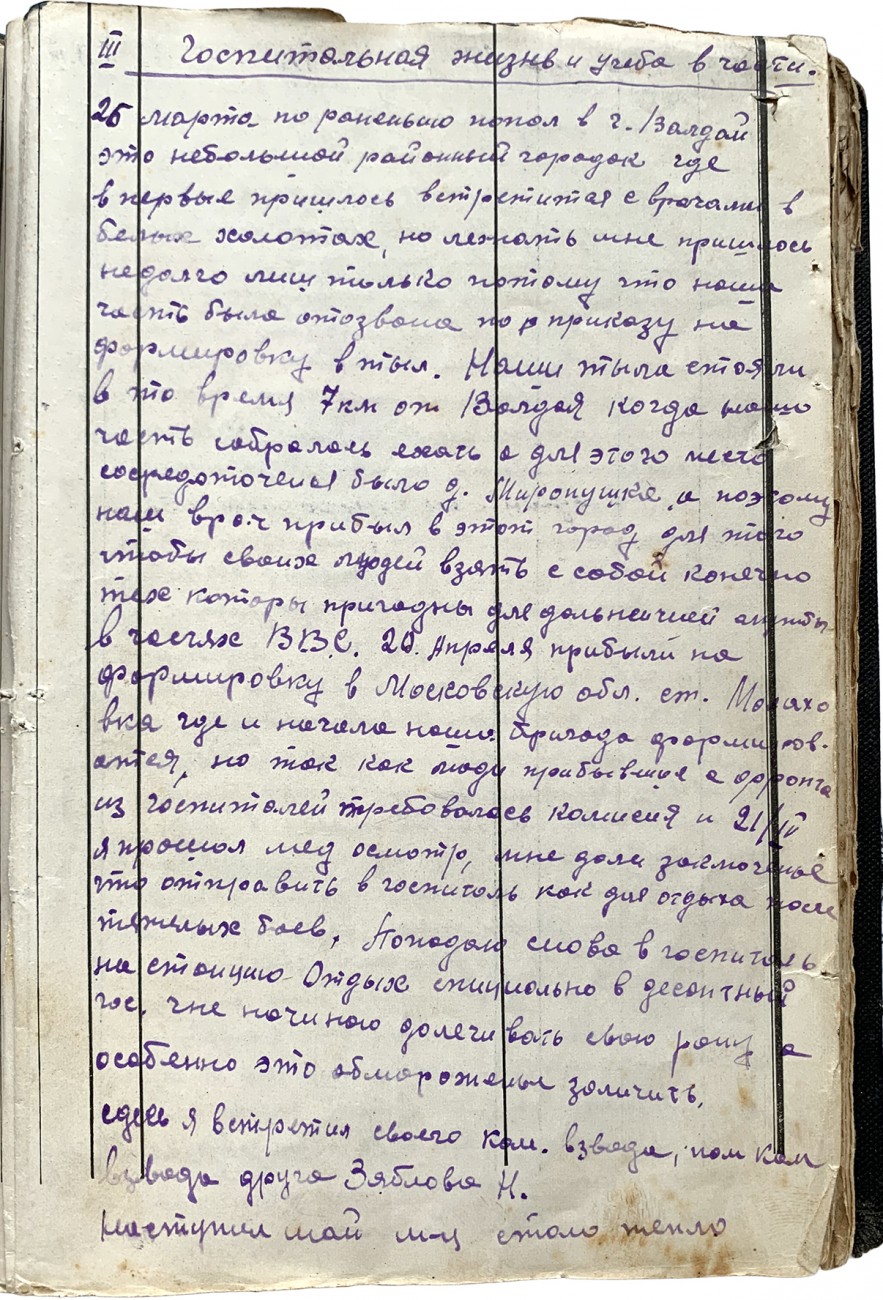 III Госпитальная жизнь и учеба в части.
25 марта по раненью попал в г. Валдай
это небольшой районный городок где
в первые пришлось встретится с врачами в
белых халатах, но лежать мне пришлось
недолго лиш только потому что наша
часть была отозвана по приказу на
формировку в тыл. Наши тыла стояли
в то время 7км от Валдая когда наша
часть собралась ехать а для этого место
сосредоточения было д. Миронушка, а поэтому
наш врач прибыл в этот город для того
чтобы своих людей взять с собой конечно
тех которы пригодны для дальнейшей службы
в частях ВВС. 20. Апреля прибыли на
формировку в Московскую обл. ст. Малахо
вка где и начала наша бригада формиров-
атся, но так как люди прибывшие с фронта
из госпиталей требовалась комисия и 21/IV
я прошол мед осмотр, мне дали заключенье
что отправить в госпиталь как для отдыха после
тяжелых боев. Попадаю снова в госпиталь
на станцию Отдых специально в десантный
гос. где начинаю долечивать свою рану а
особенно это обмороженье заличить.
сдесь я встретил своего ком. взвода, пом ком
взвода друга Зяблова Н.
Наступил май м-ц стало тепло